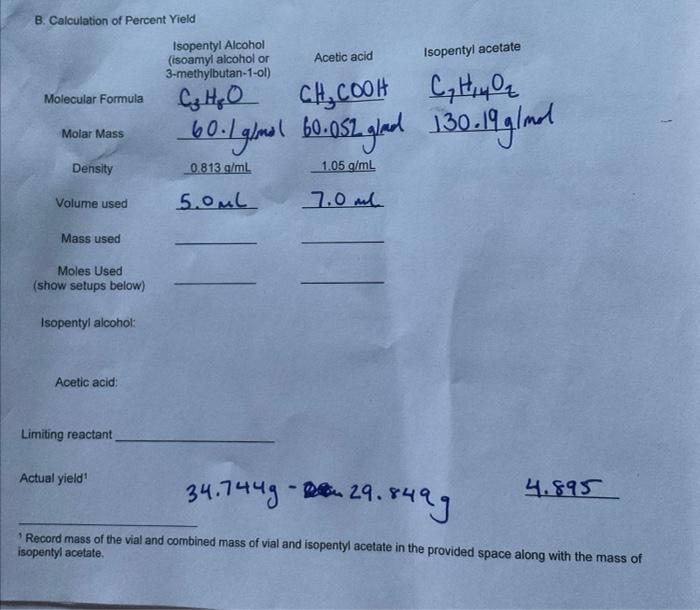 B. Calculation of Percent Yield
Isopentyl Alcohol
(isoamyl alcohol or
3-methylbutan-1-ol)
Acetic acid
Isopentyl acetate
Molecular Formula C₃H₈O CH₃COOH C₇H₁₄O₂
Molar Mass 60.1 g/mol 60.052 g/mol 130.19 g/mol
Density 0.813 g/mL 1.05 g/mL
Volume used 5.0 mL 7.0 mL
Mass used
Moles Used
(show setups below)
Isopentyl alcohol:
Acetic acid:
Limiting reactant
Actual yield¹ 34.744g - 29.849g 4.895
¹ Record mass of the vial and combined mass of vial and isopentyl acetate in the provided space along with the mass of
isopentyl acetate.